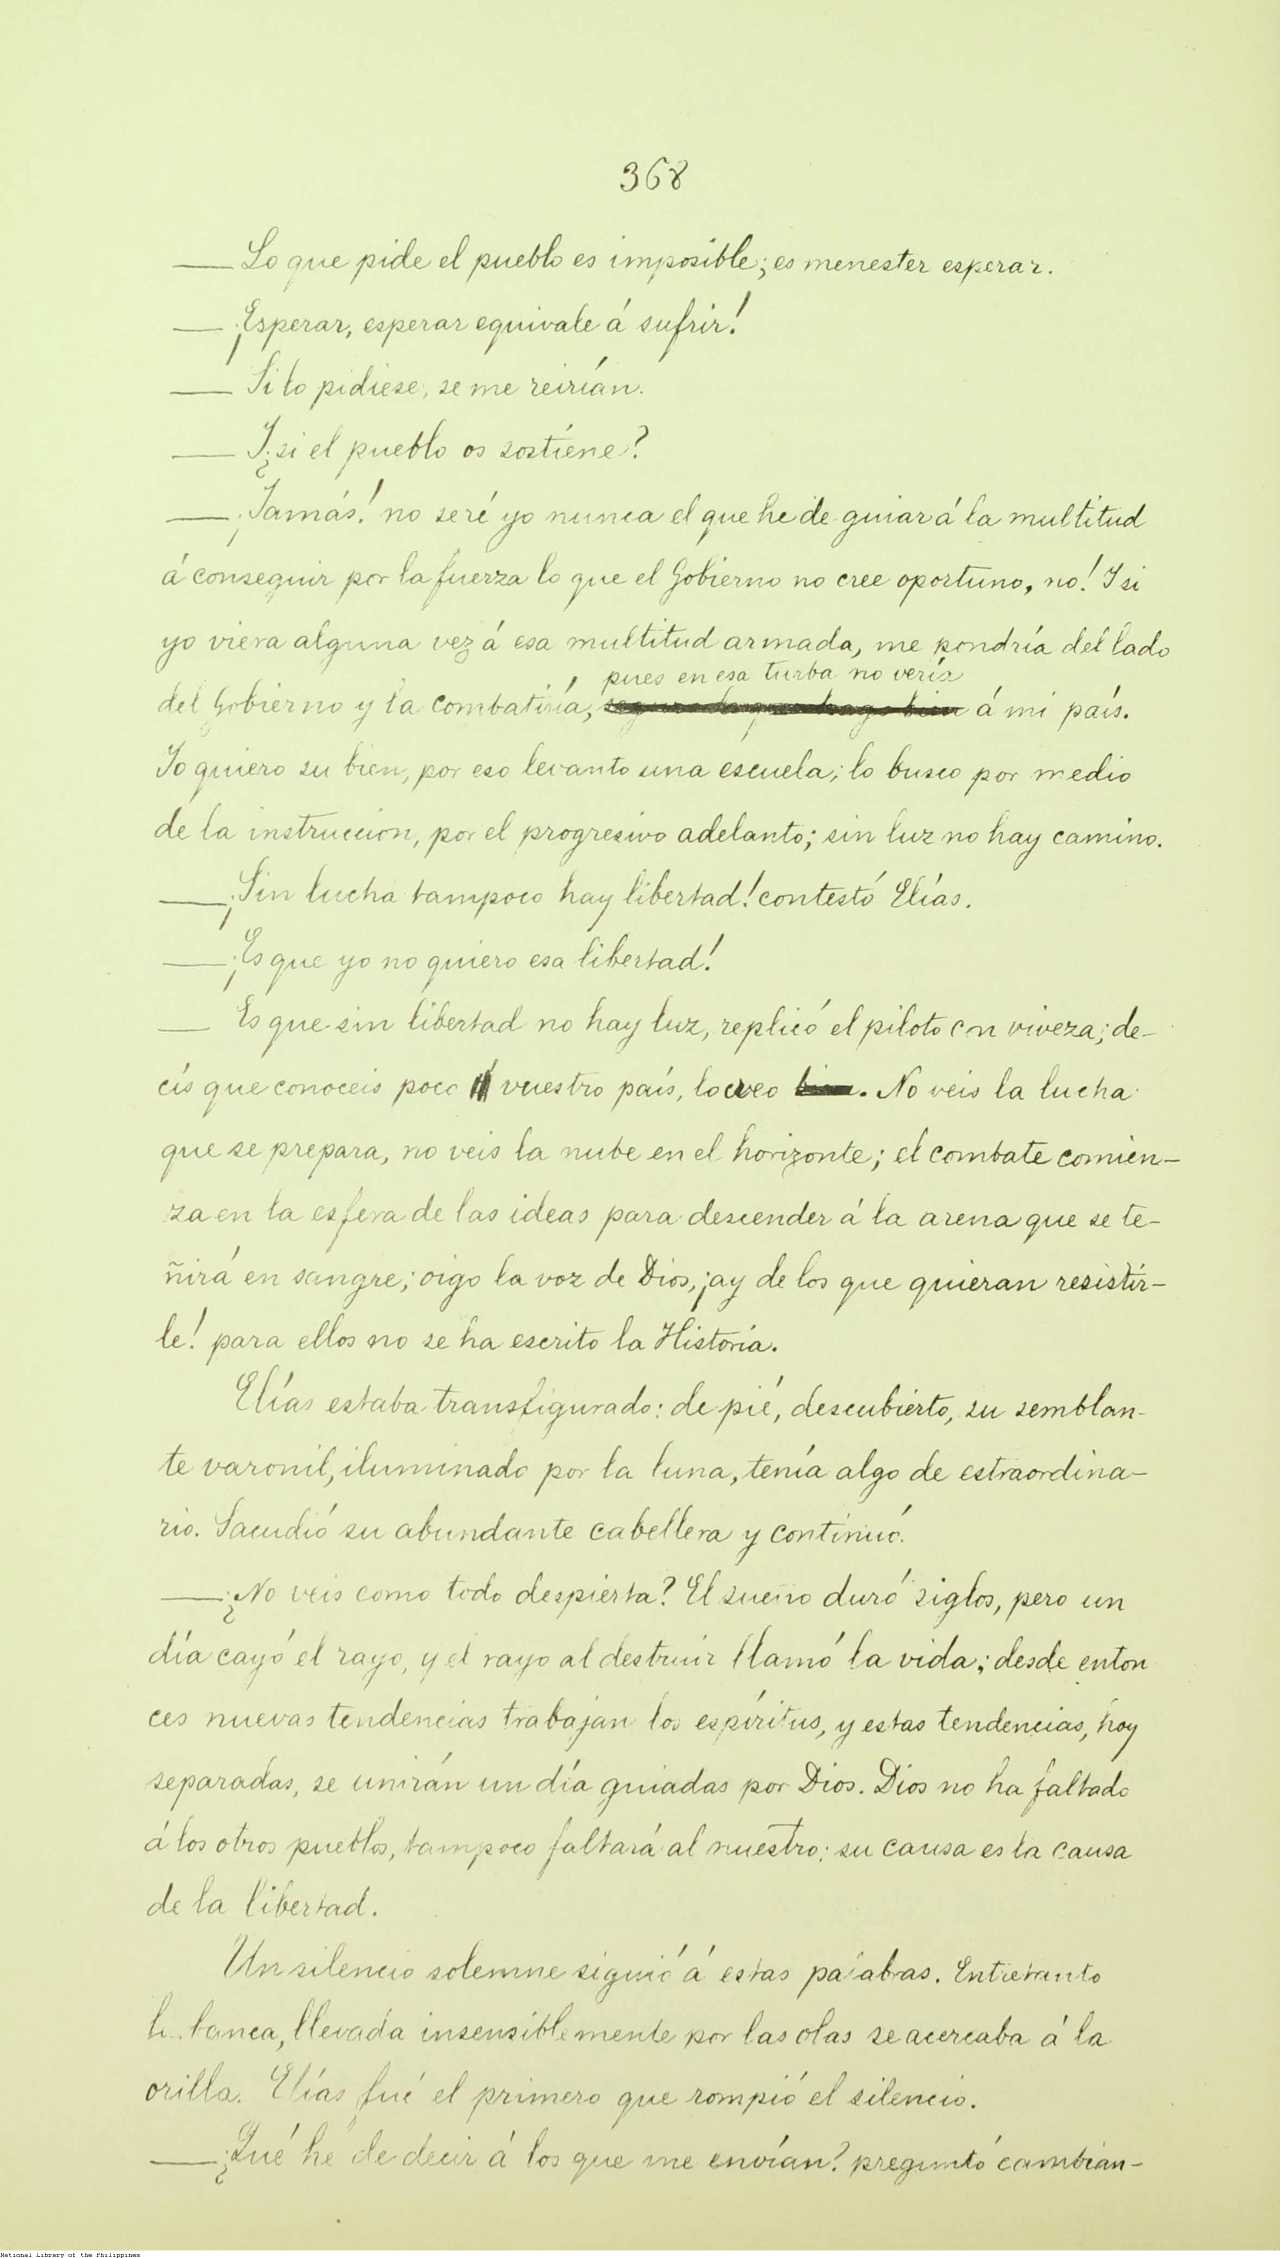 368
— Lo que pide el pueblo es imposible; es menester esperar.
— ¡Esperar, esperar equivale á sufrir!
— Si lo pidiese, se me reirían.
— Y ¿si el pueblo os sostiene?
— ¡Jamás! no seré yo nunca el que he de guiar á la multitud
á conseguir por la fuerza lo que el Gobierno no cree oportuno, no! Y si
yo viera alguna vez á esa multitud armada, me pondría del lado
pues en esa turba no vería
del Gobierno y la combatiría, á mi país.
Yo quiero su bien, por eso levanto una escuela; lo busco por medio
de la instruccion, por el progresivo adelanto; sin luz no hay camino.
— ¡Sin lucha tampoco hay libertad! contestó Elías.
— ¡Es que yo no quiero esa libertad!
— Es que sin libertad no hay luz, replicó el piloto con viveza; de-
cís que conoceis poco vuestro país, lo creo. No veis la lucha
que se prepara, no veis la nube en el horizonte; el combate comien-
za en la esfera de las ideas para descender á la arena que se te-
ñirá en sangre; oigo la voz de Dios, ¡ay de los que quieran resistir-
le! para ellos no se ha escrito la Historia.
Elías estaba transfigurado: de pié, descubierto, su semblan-
te varonil, iluminado por la luna, tenía algo de estraordina-
rio. Sacudió su abundante cabellera y continuó.
— ¿No veis como todo despierta? El sueño duró siglos, pero un
día cayó el rayo, y el rayo al destruir llamó la vida; desde enton
ces nuevas tendencias trabajan los espíritus, y estas tendencias, hoy
separadas, se unirán un día guiadas por Dios. Dios no ha faltado
á los otros pueblos, tampoco faltará al nuestro; su causa es la causa
de la libertad.
Un silencio solemne siguió á estas palabras. Entretanto
la banca, llevada insensiblemente por las olas se acercaba á la
orilla. Elías fué el primero que rompió el silencio.
— ¿Qué hé de decir á los que me envían? preguntó cambian-
National Library of the Philippines